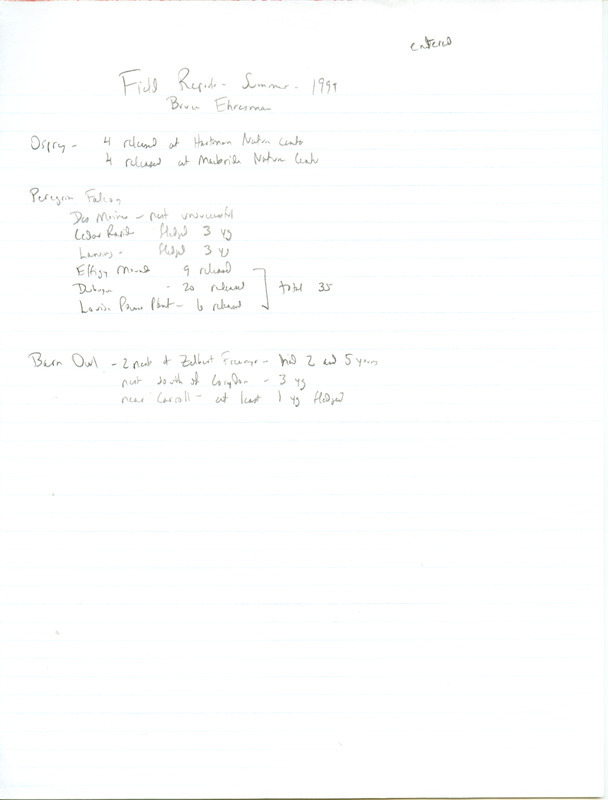 entered
Field Reports - Summer - 1999
Bruce Ehresman
Osprey - 4 released at Hartman Nature Center
4 released at Macbride Nature Center
Peregrine Falcon
Des Moines - nest unsuccessful
Cedar Rapids fledged 3 yg
Lansing - fledged 3 yg
Effigy Mounds 9 released
Dubuque - 20 released total 35
Louisa Power Plant - 6 released
Barn Owl - 2 nests at - had 2 and 5 young
nest south of Corydon - 3 yg
near Carroll - at least 1 yg fledged